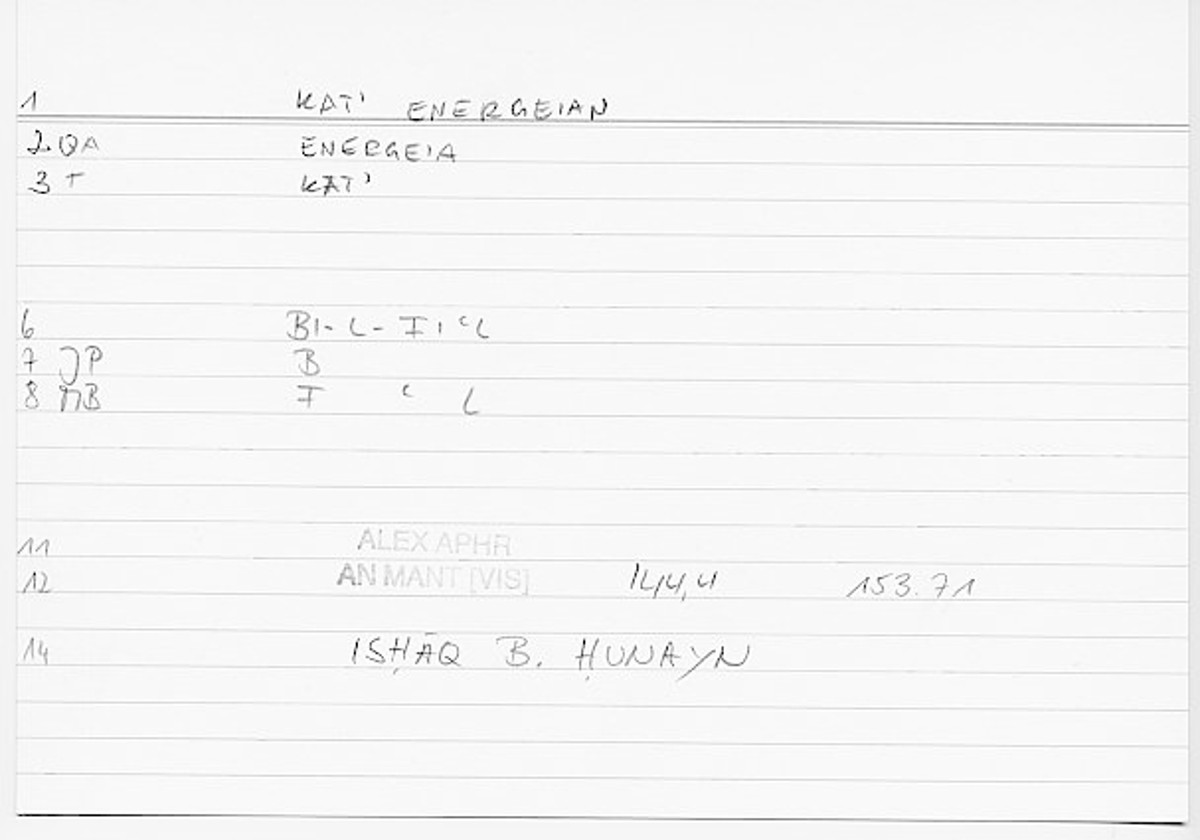 1 KAT' ENERGEIAN
2 QA ENERGEIA
3 T KAT'
6 BI-L-FIʿL
7 JP B
8 MB F ʿ L
11 ALEX APHR
12 AN MANT [VIS] 144,4 153.71
14 ISḤĀQ B. ḤUNAYN